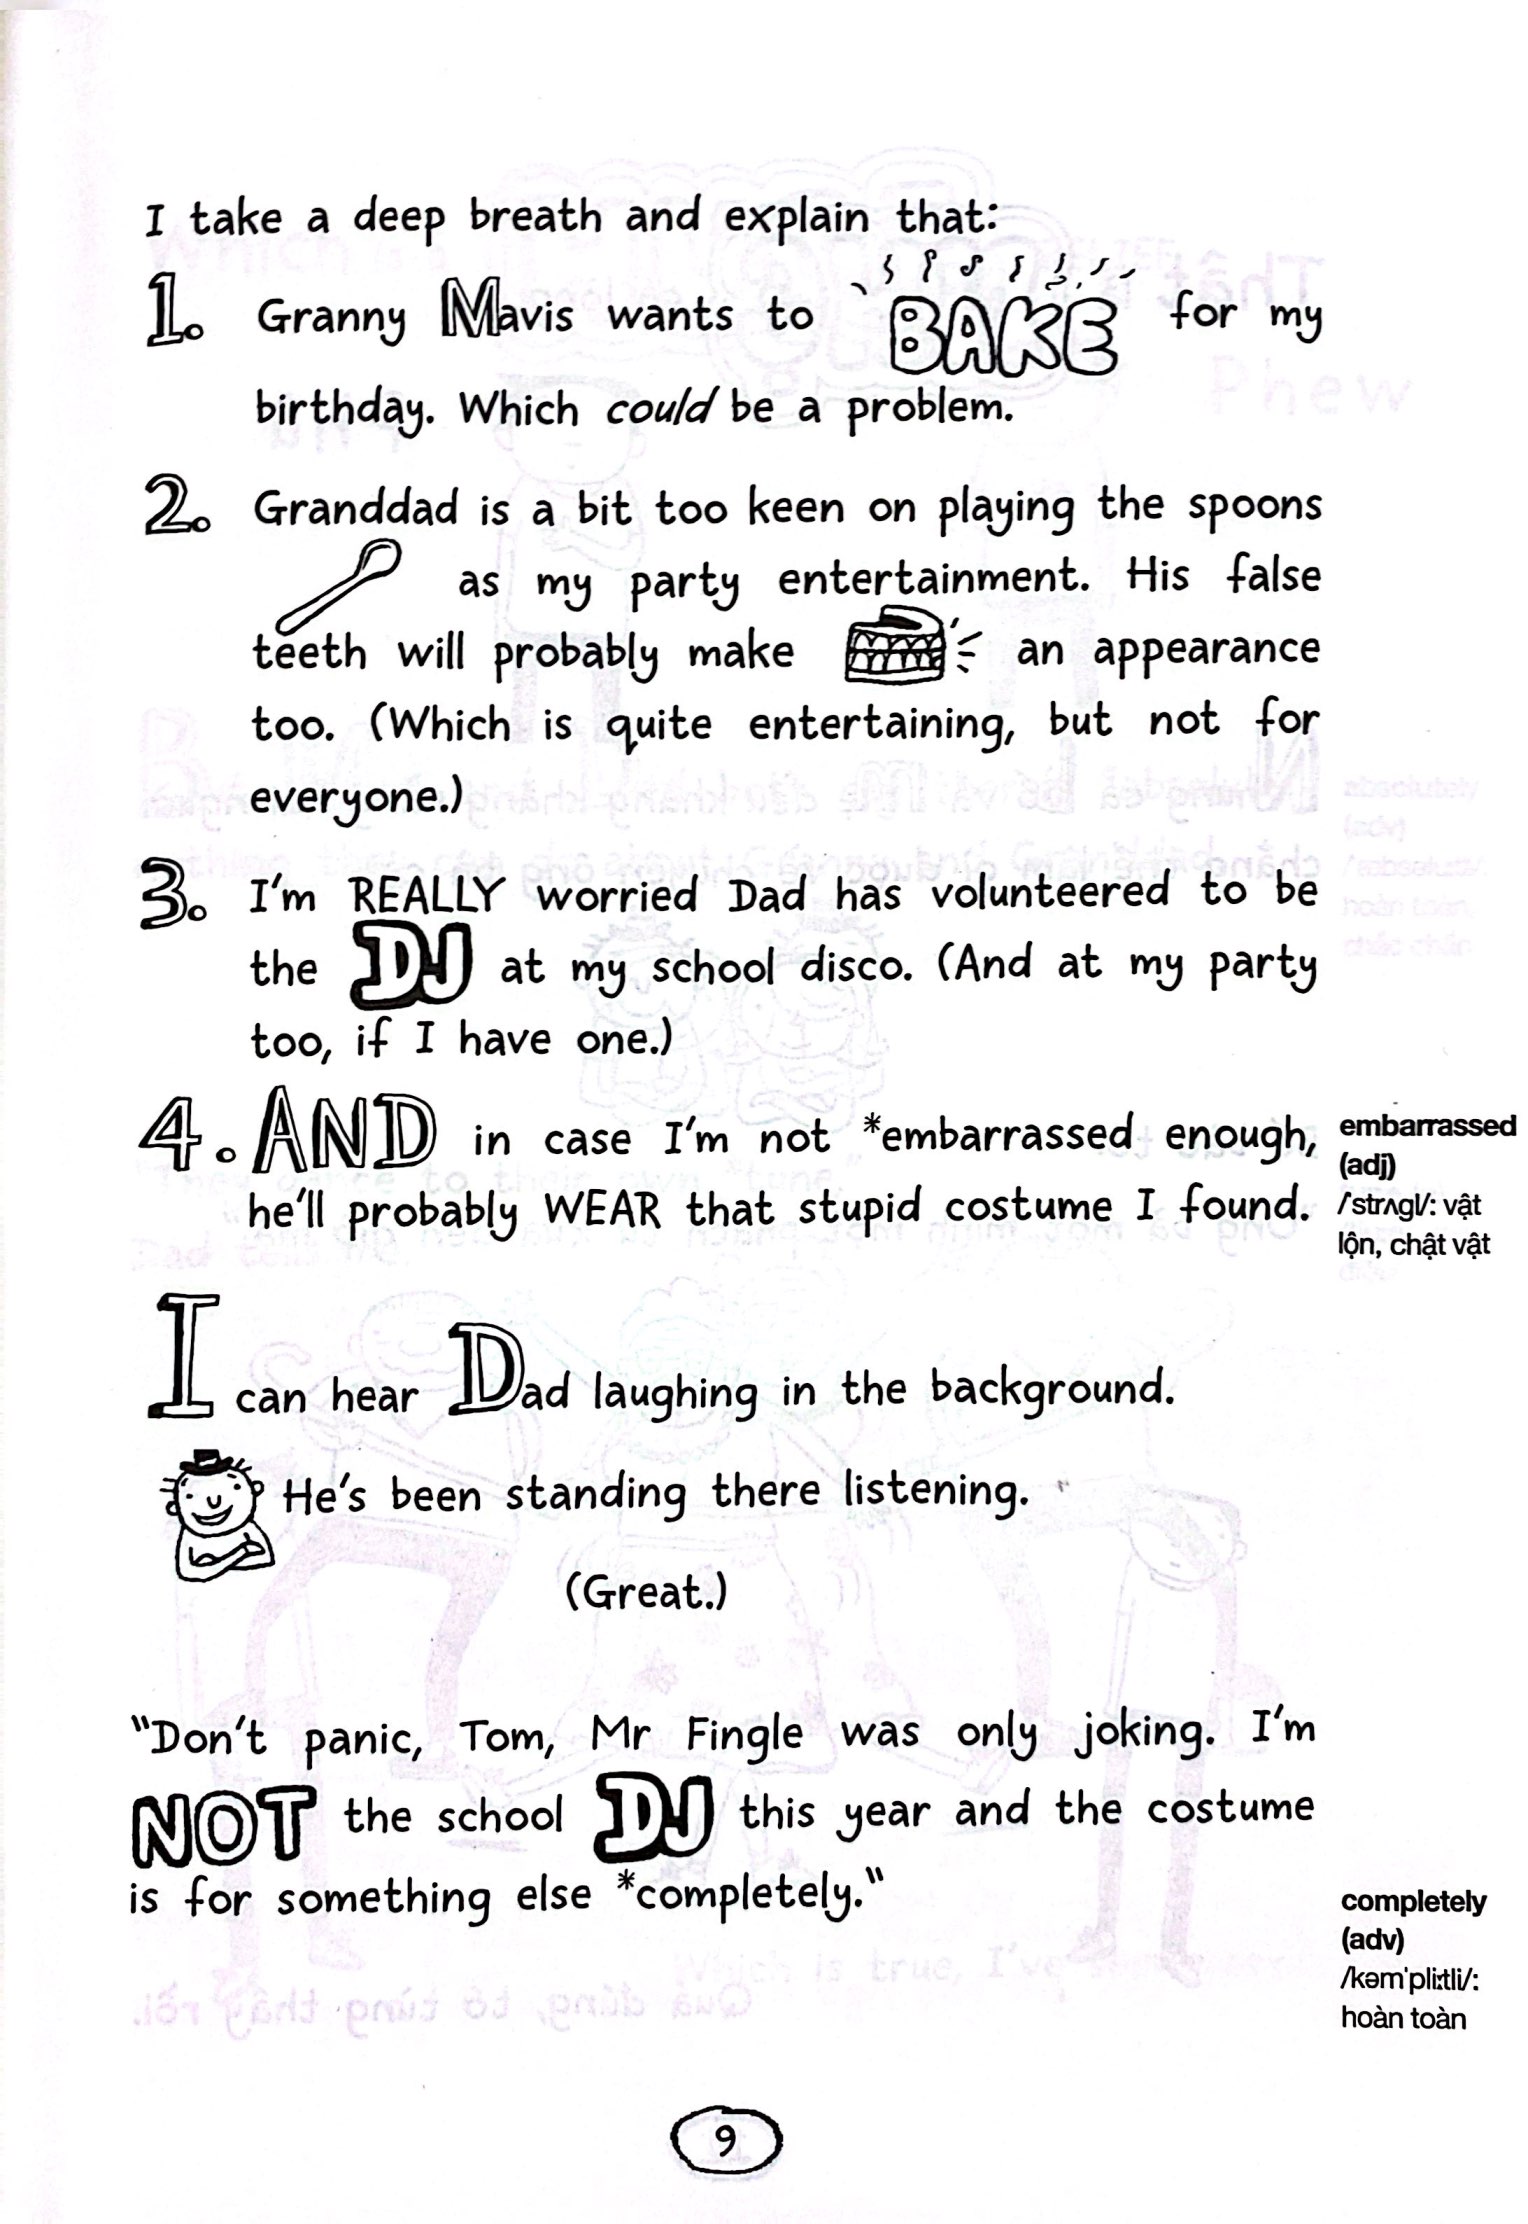 I take a deep breath and explain that:
1. Granny Mavis wants to BAKE for my
birthday. Which could be a problem.
2. Granddad is a bit too keen on playing the spoons
as my party entertainment. His false
teeth will probably make an appearance
too. (Which is quite entertaining, but not for
everyone.)
3. I'm REALLY worried Dad has volunteered to be
the DJ at my school disco. (And at my party
too, if I have one.)
4. AND in case I'm not *embarrassed enough,
he'll probably WEAR that stupid costume I found.
embarrassed
(adj)
/strʌgl/: vật
lộn, chật vật
I can hear Dad laughing in the background.
He's been standing there listening.
(Great.)
"Don't panic, Tom, Mr Fingle was only joking. I'm
NOT the school DJ this year and the costume
is for something else *completely."
completely
(adv)
/kəmˈpliːtli/:
hoàn toàn
9